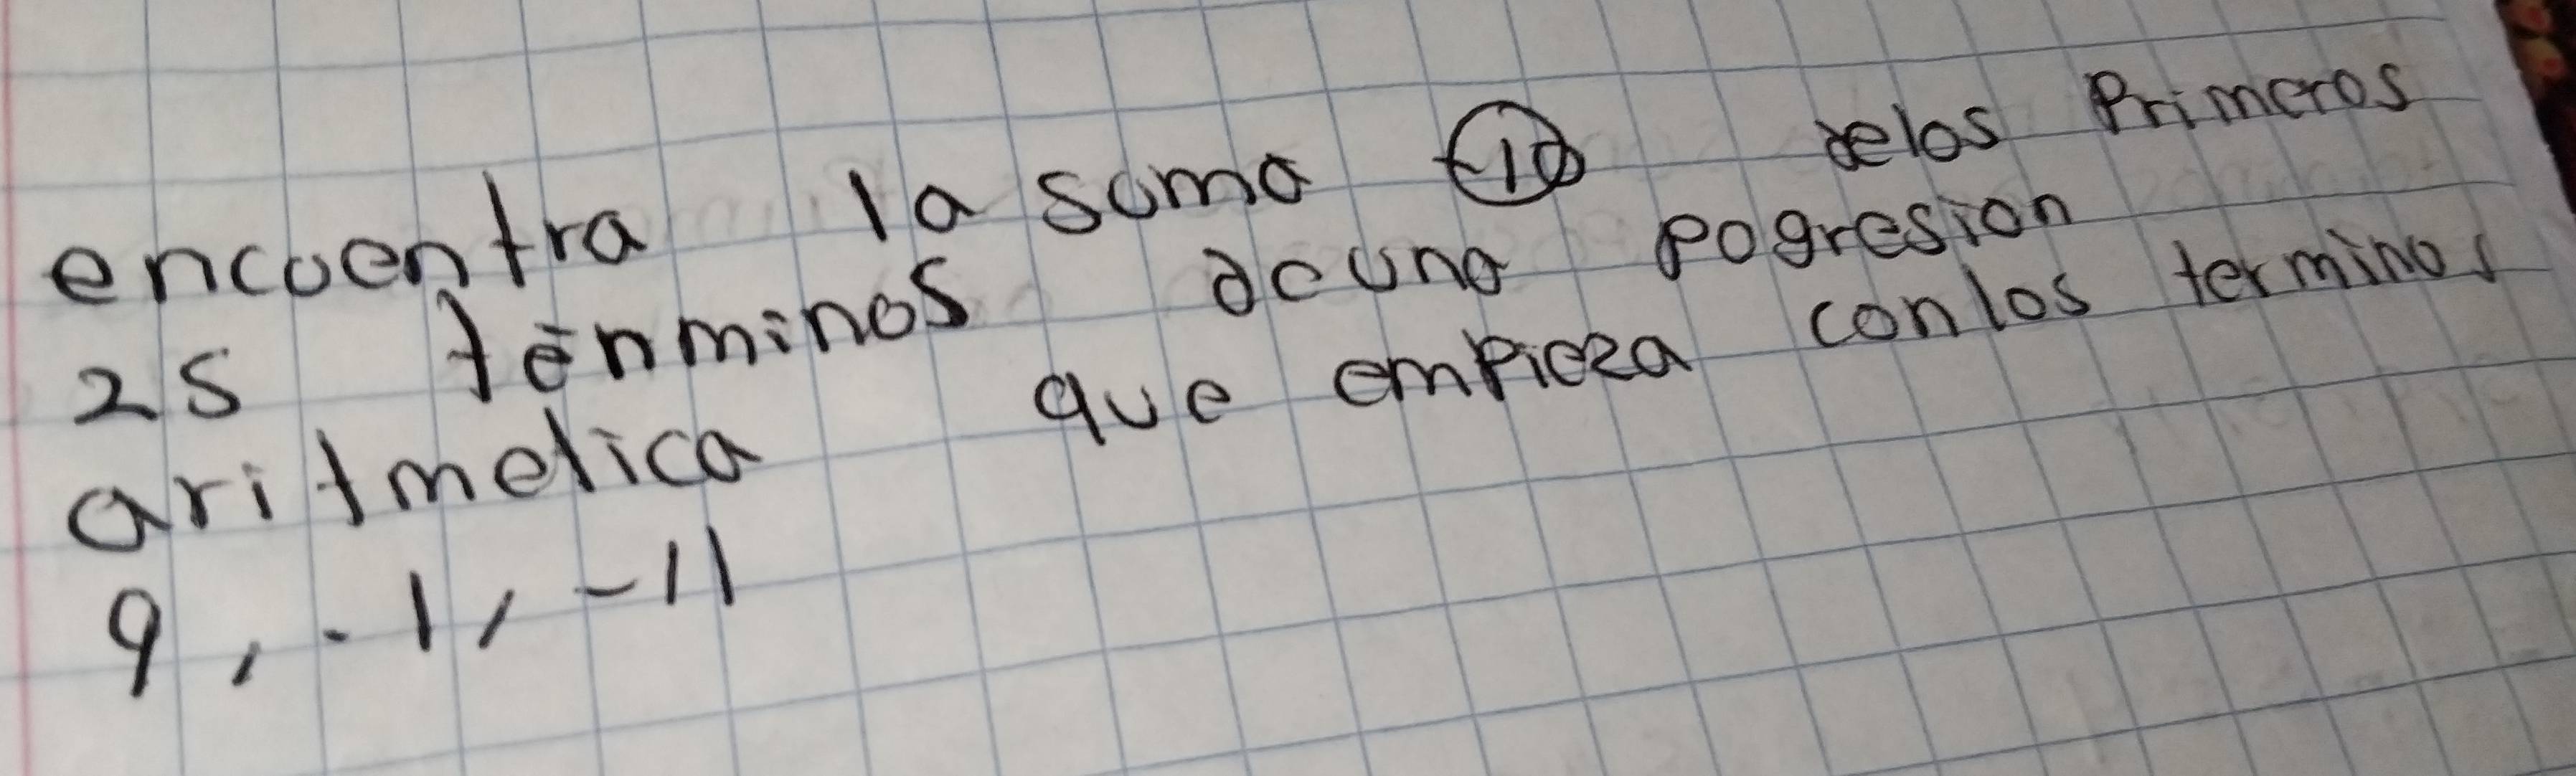 encuentra la suma -10 delos Primeros
25 términos de una Pogresion
aritmetica que empieza con los terminos
9, -1, -11